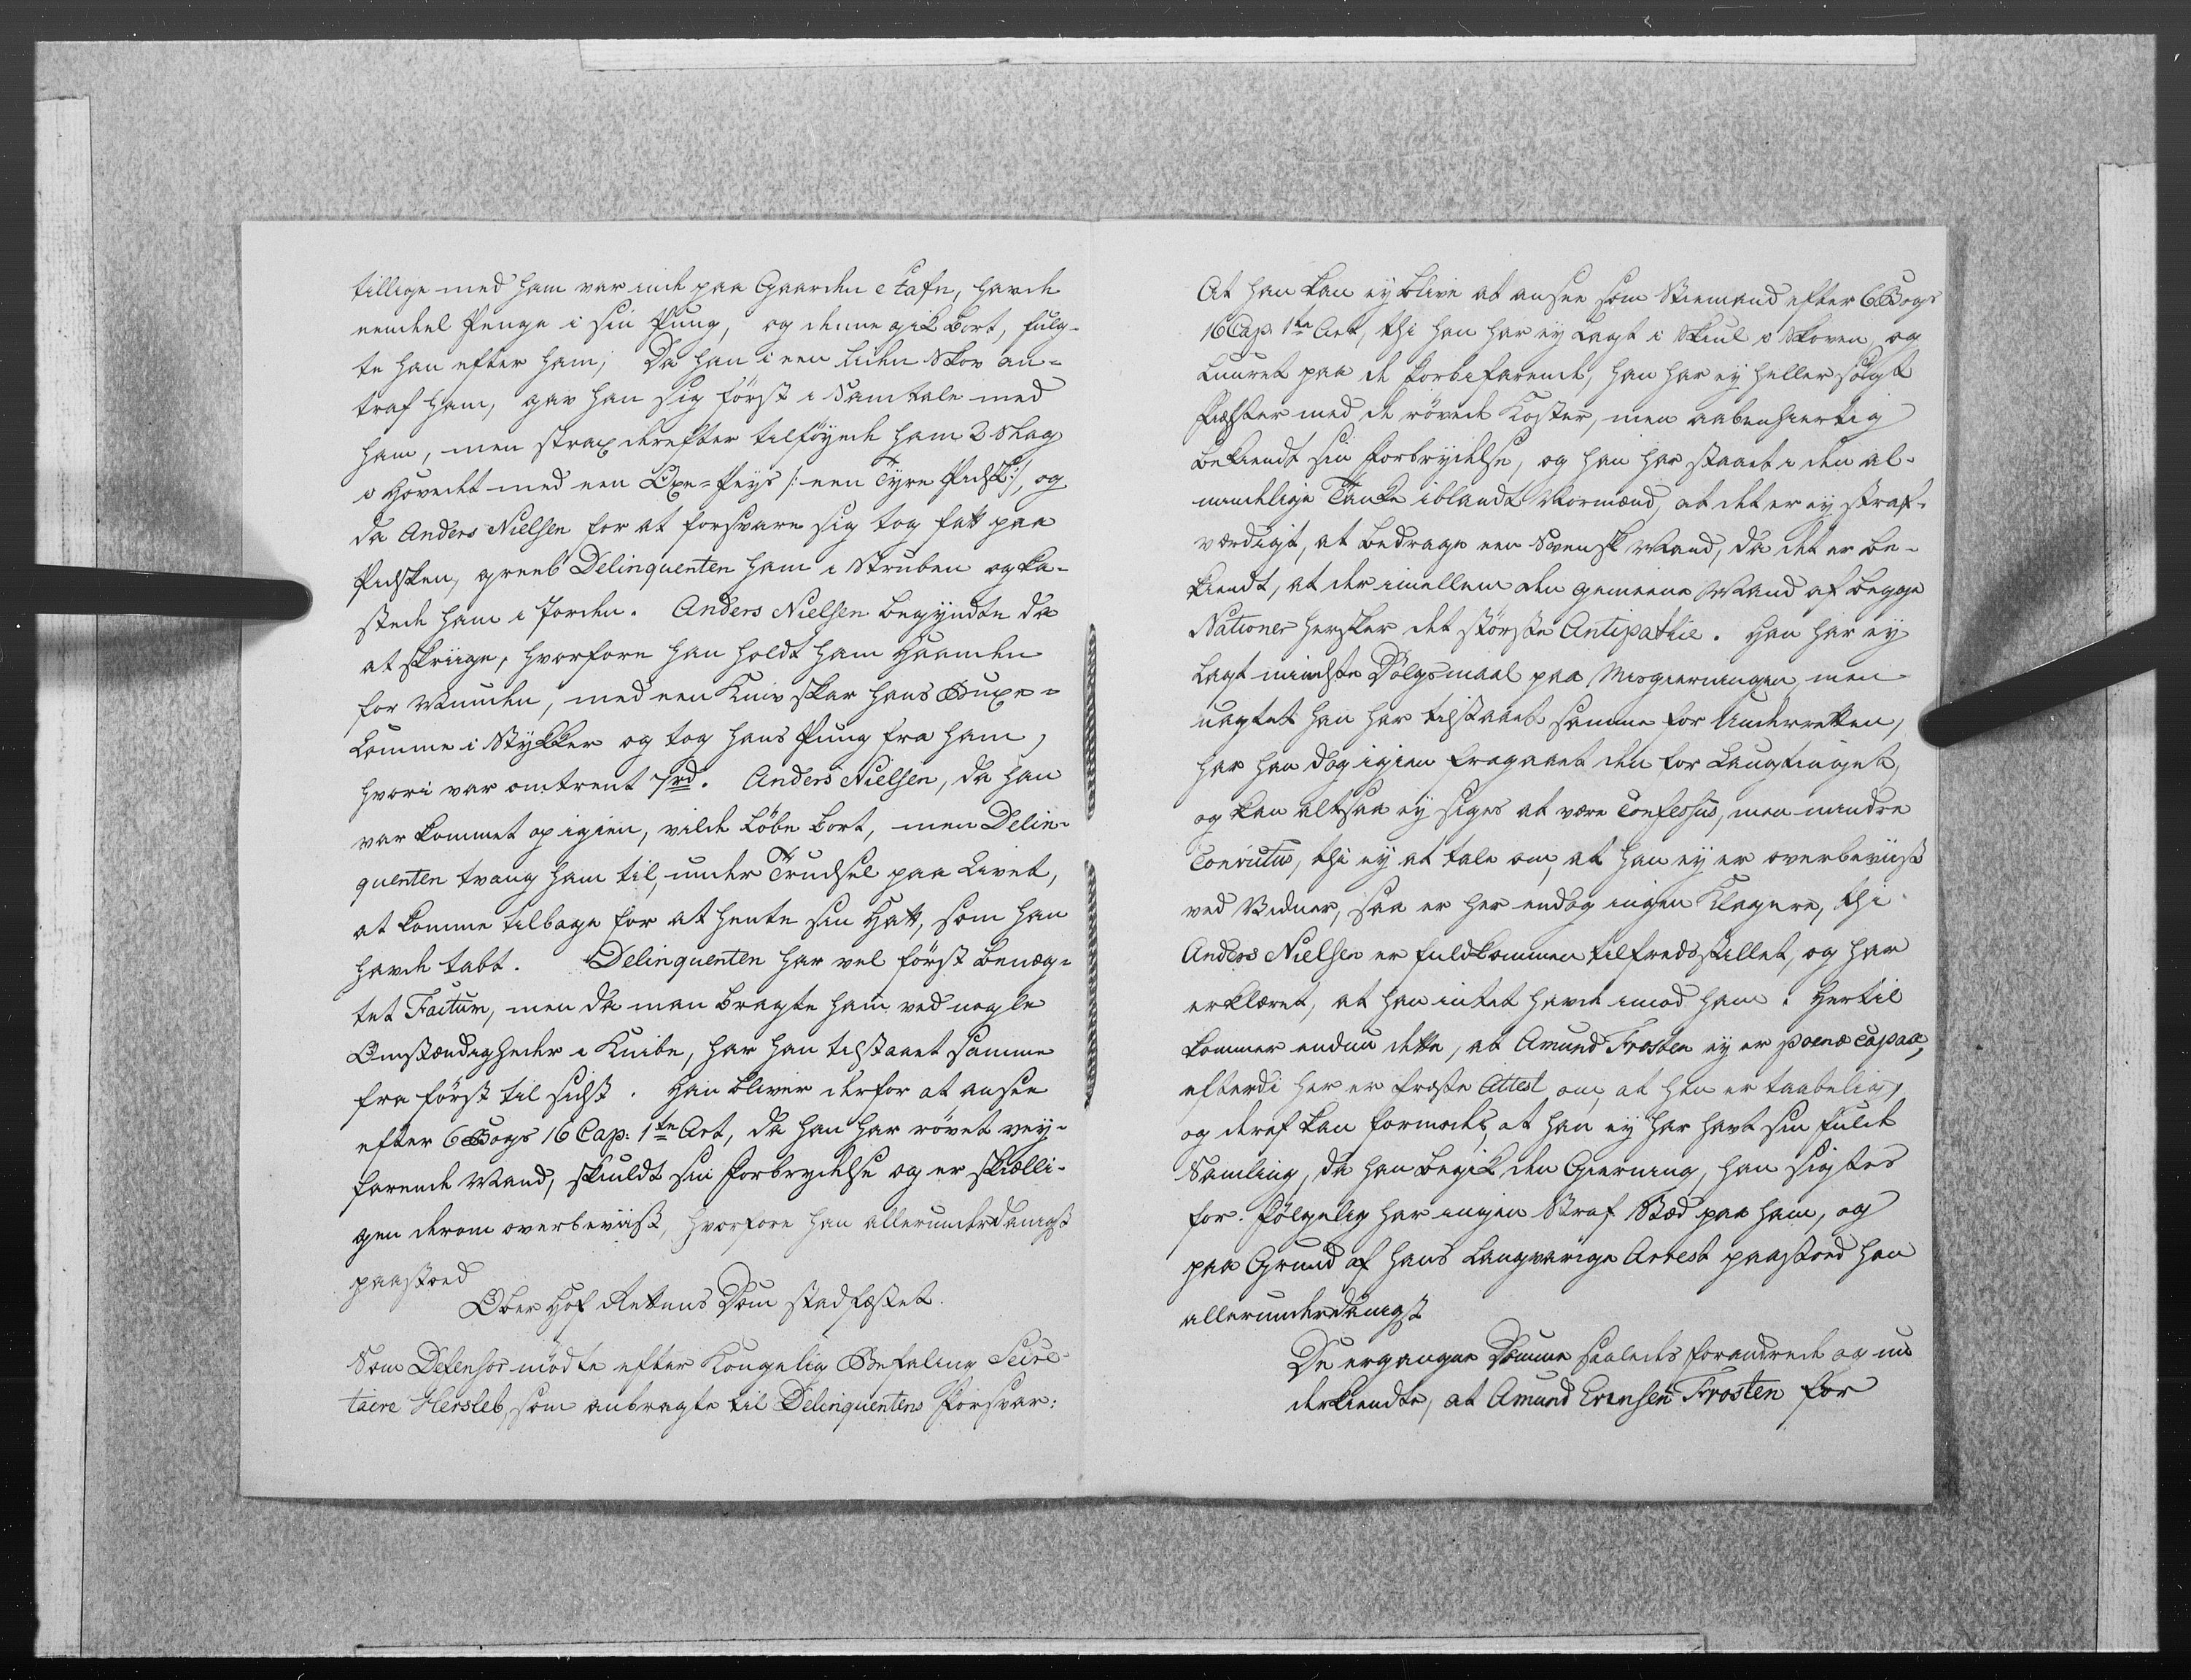 tillige med ham var inde paa Gaarden Stafn, havde
eendeel Penge i sin Pung, og denne gik bort, fulg-
te han efter ham; Da han i een liden Skov an-
traf ham, gav han sig först i Samtale med
ham, men strax derefter tilföyede ham 2 Slag
i Hovedet med een Oxe-Peys /: een Tyre Pidsk :/, og
da Anders Nielsen for at forsvare sig tog fatt paa
Pidsken, greeb Delinquenten ham i Struben og ka-
stede ham i Jorden. Anders Nielsen begyndte da
at skriige, hvorfore han holdt ham Haanden
for Munden, med een Kniv skar hans Buxe-
Lomme i Stykker og tog hans Pung fra ham,
hvori var omtrent 7 rd. Anders Nielsen, da han
var kommet op igien, vilde löbe bort, men Delin-
quenten tvang ham til, under Trudsel paa Livet,
at komme tilbage for at hente sin Hatt, som han
havde tabt. Delinquenten har vel först benæg-
tet Factum, men da man bragte ham ved nogle
Omstændigheder i Knibe, har han tilstaaet samme
fra först til sidst. Han bliver derfor at ansee
efter 6 Bogs 16 Cap: 1te Art, da han har rövet vey-
farende Mand, skiuldt sin Forbrydelse og er skielli-
gen derom overbeviist, hvorfore han allerunderdanigst
paastoed
Ober Hof Rettens Dom stadfæstet.
Som Defensor mödte efter Kongelig Befaling Secre-
taire Hersleb, som anbragte til Delinquentens Forsvar:
At han kan ey blive at ansee som Stiemand efter 6 Bogs
16 Cap. 1te Art, thi han har ey lagt i Skiul i Skoven, og
luuret paa de forbifarende, han har ey heller sögt
med de rövede Koster, men aabenhiertig
bekiendt sin Forbrydelse, og han har staaet i den al-
mindelige Tanke iblandt Normænd, at det er ey straf-
værdigt, at bedrage een Svensk Mand, da det er be-
kiendt, at der imellem den gemeene Mand af begge
Nationer hersker det störste Antipathie. Han har ey
lagt mindste Dölgsmaal paa Misgierningen, men
uagtet han har tilstaaet samme for Underretten,
har han dog igien fragaaet den for Laugtinget,
og kan altsaa ey siges at være Confessus, men mindre
Convictus, thi ey at tale om, at han ey er overbeviist
ved Vidner, saa er her endog ingen Klagere, thi
Anders Nielsen er fuldkommen tilfredsstillet, og har
erklæret, at han intet havde imod ham. Hertil
kommer endnu dette, at Amund Frosten ey er poenæ capax,
efterdi her er Attest om, at han er taabelig,
og deraf kan formodes, at han ey har havt sin fulde
Samling, da han begik den Gierning, han sigtes
for. Fölgelig har ingen Straf Sted paa ham, og
paa Grund af hans langvarige Arrest paastoed han
allerunderdanigst
De ergangne Domme saaledes forandrede og un
derkiendte, at Amund Evensen Frosten for